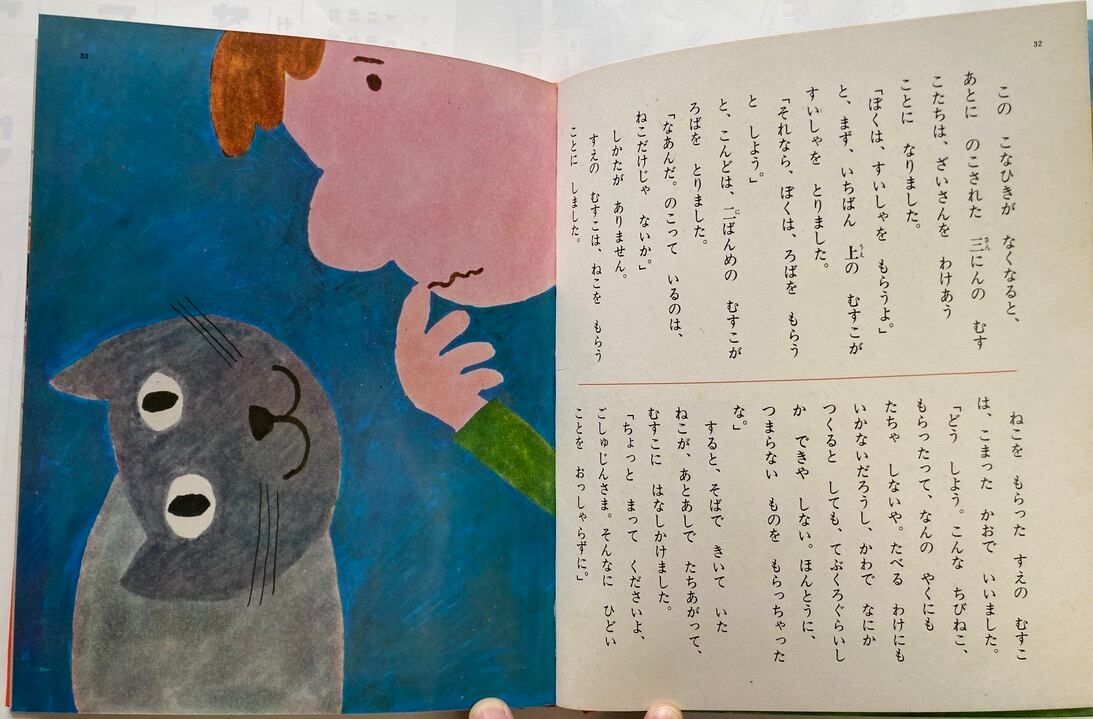 32
この こなひきが なくなると、
あとに のこされた 三にんの むす
こたちは、ざいさんを わけあう
ことに なりました。
「ぼくは、すいしゃを もらうよ。」
と、まず、いちばん 上の むすこが
すいしゃを とりました。
「それなら、ぼくは、ろばを もらう
と しよう。」
と、こんどは、二ばんめの むすこが
ろばを とりました。
「なあんだ。のこって いるのは、
ねこだけじゃ ないか。」
しかたが ありません。
すえの むすこは、ねこを もらう
ことに しました。
ねこを もらった すえの むすこ
は、こまった かおで いいました。
「どう しよう。こんな ちびねこ、
もらったって、なんの やくにも
たちゃ しないや。たべる わけにも
いかないだろうし、かわで なにか
つくると しても、てぶくろぐらいし
か できや しない。ほんとうに、
つまらない ものを もらっちゃった
な。」
すると、そばで きいて いた
ねこが、あとあしで たちあがって、
むすこに はなしかけました。
「ちょっと まって くださいよ、
ごしゅじんさま。そんなに ひどい
ことを おっしゃらずに。」
33